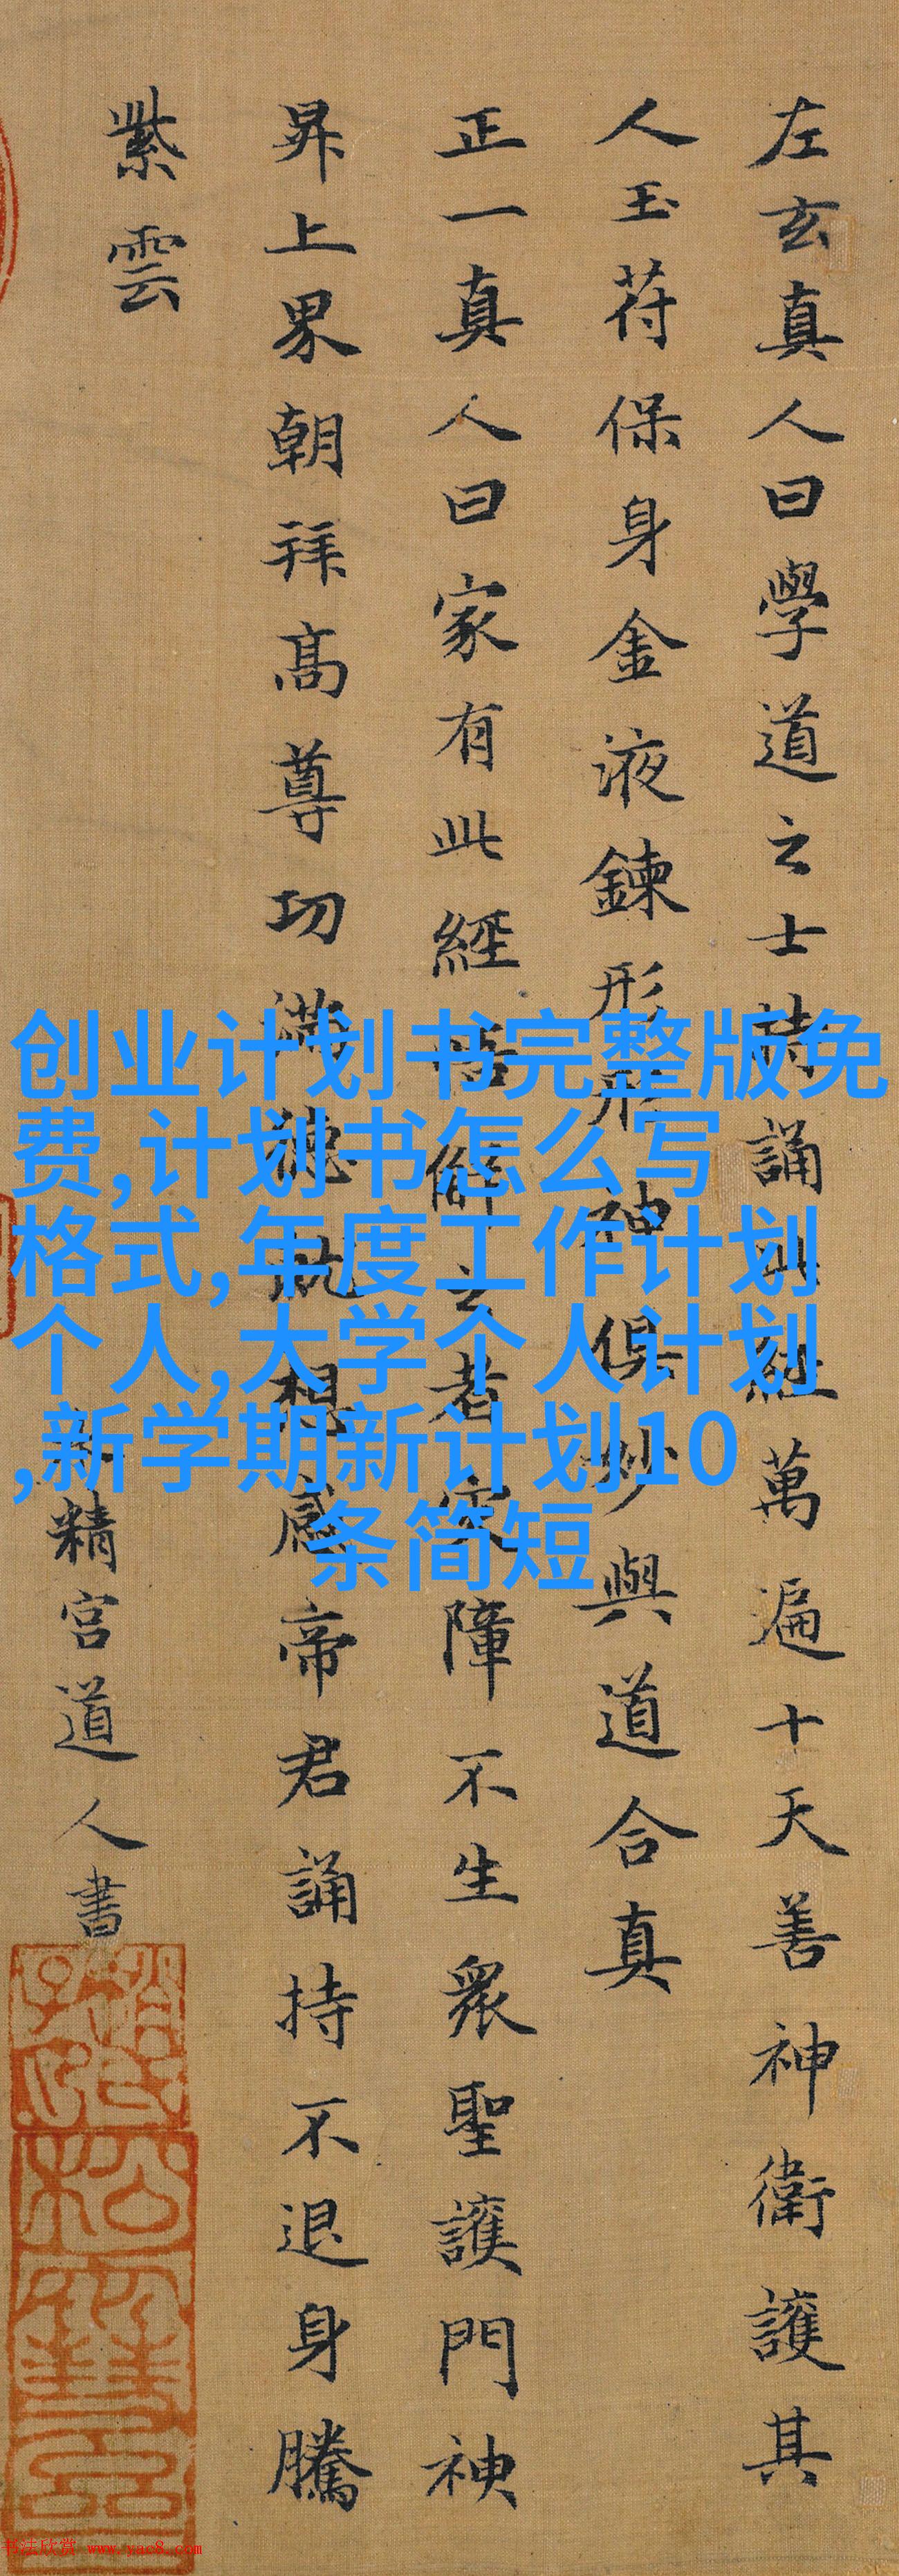 左玄真人曰學道之士持誦此經萬遍十天善神衛護其
人玉苻保身金液鍊形形神俱妙與道合真
正一真人曰家有此經悟解之者灾障不生衆聖護門神
昇上界朝拜髙尊功滿德就想感帝君誦持不退身騰
紫雲
精宫道人書
创业计划书完整版免
费,计划书怎么写
格式,年度工作计划
个人,大学个人计划
,新学期新计划10
条简短
书法欣赏 www.yac8.com